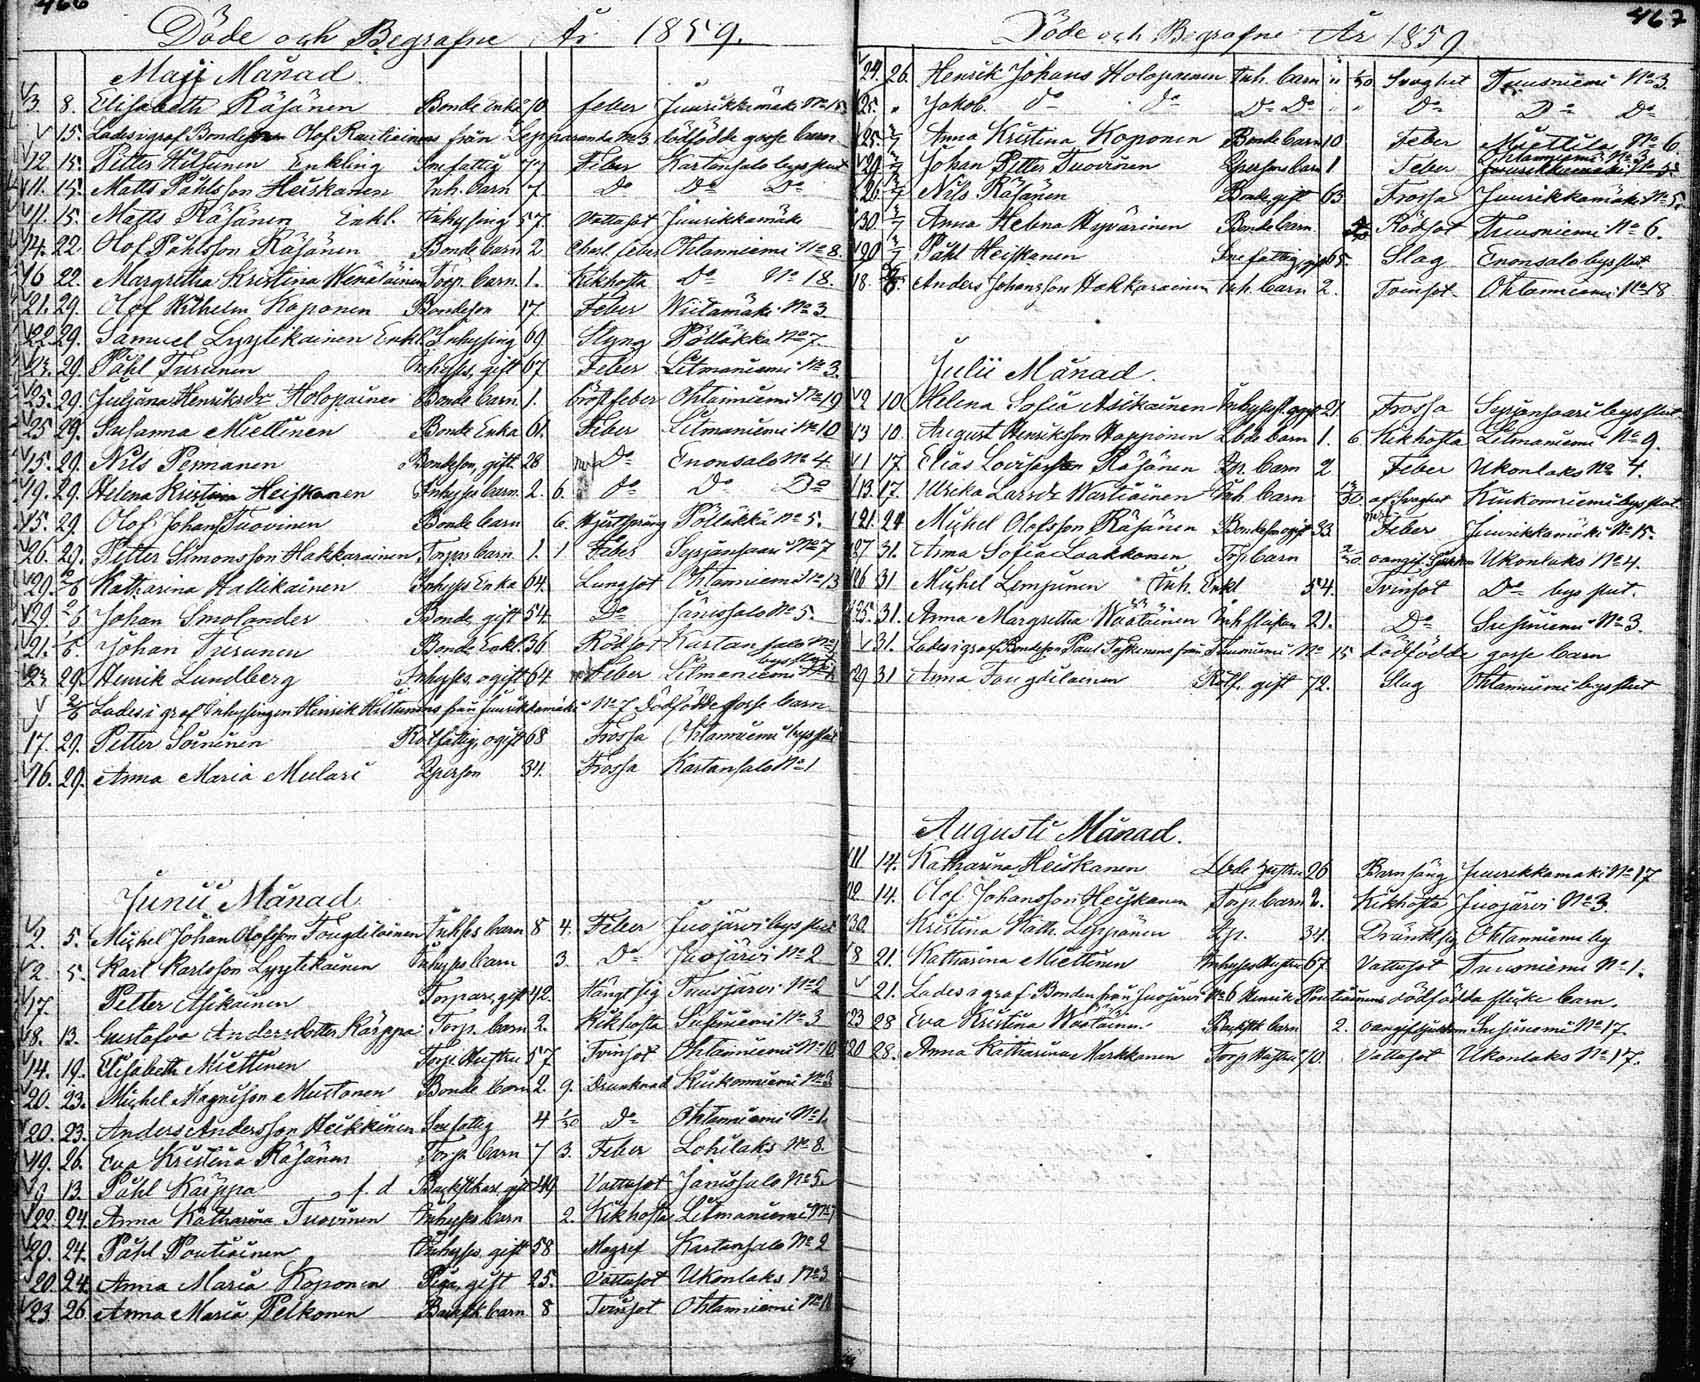 466
Döde och Begrafne År 1859.
Maji Månad
3. 8. Elisabeth Räsänen Bonde Enka 70. feber Juurikkamäki No 15
15. Lades i graf Bonden Olof Rautiainens från Lepparanda No 3 dödfödde gosse barn
12. 15. Petter Hiltunen Enkling Snefattig 77 Feber Kartansalo bys slut
11. 15. Matts Påhlsson Heiskanen Inh. barn 7. Do Do Do
11. 15. Matts Räsänen Enkl. Inhysing 57. Vattusot Juurikkamäki
14. 22. Olof Påhlsson Räsänen Bonde barn 2. feber Ohtaniemi No 8.
16 22. Margretha Kristina Torp. barn. 1. Kikhosta Do No 18.
21. 29. Olof Wilhelm Koponen Bondeson 17. Feber Wiitamäki No 3.
22. 29. Samuel Lyytikäinen Enkl. Inhysing 69. Styng Pölläkkä No 7
23. 29. Påhl Turunen Inhyses, gift 67 Feber Litmaniemi No 3.
25. 29. Juljana Henriksdr Holopainen Bonde barn. 1. bröstfeber Ohtaniemi No 19
25 29. Susanna Miettinen Bonde Enka 61. Feber Litmaniemi No 10
15. 29. Nils Pennanen Bondeson, gift. 28 Do Enonsalo No 4
19. 29. Helena Kristina Heiskanen Inhyses barn. 2. 6. Do Do Do
15. 29 Olof Johansson Tuovinen Bonde barn 6. Hjertsprång Pölläkkä No 5.
26. 29. Petter Simonsson Hakkarainen Torpar barn 1. 1 Feber Syrjänsaari No 7
29. 2/6 Katharina Hallikainen Inhyses Enka 64. Lungsot Ohtaniemi No 13
29. 2/6 Johan Smolander Bonde, gift 54. Do Jänissalo No 5.
21. Johan Turunen Bonde Enkl. 36 Rödsot Kartansalo No
23. 29. Henrik Lundberg Inhyses ogift 64 Feber Litmaniemi
Lades i graf Inhysingen Henrik Hiltunens från Juurikkamäki No 7 Dödfödde gosse barn
17. 29. Petter Soininen Rotfattig, ogift 68 Frossa Ohtaniemi bys slut
16. 29. Anna Maria Mulari Person 34. Frossa Kartansalo No 1
Junii Månad
2. 5. Michel Johan Olofsson Tougdilainen Inhyses barn 8 4. Feber Juojärvi bys slut
2. 5. Karl Karlsson Lyytikäinen Inhyses barn 3. Do Juojärvi No 2
17. Petter Asikainen Torpare, gift 42. Hängt sig Tuusjärvi No 2
8. 13. Gustafva Andersdotter Käyppä Torp. barn 2. Kikhosta Susiniemi No 3
14. 19. Elisabeth Miettinen Torp. Hustru 57 Tvinsot Ohtaniemi No 10
20. 23. Michel Magnisson Mustonen Bonde barn 2. 9. Drunknad Kiukonniemi No 3
20. 23. Anders Andersson Heikkinen Snefattig 4 Do Ohtaniemi No 1.
19. 26. Eva Kristina Räsänen Torp. barn 7 3. Feber Lohilaks No 8.
9 13. Påhl Karppa f. d Backstukar. gift 49 Vattusot Jänissalo No 5.
22. 24. Anna Katharina Tuovinen Inhyses barn 2. Kikhosta Litmaniemi
20. 24. Påhl Poutiainen Inhyses gift 58 Magref Kartansalo No 2
20. 24. Anna Maria Koponen Piga, gift 25. Vattusot Ukonlaks No 3
23. 26. Anna Maria Pelkonen Backst. barn 8 Tvinsot Ohtaniemi No 18
467
Döde och Begrafne År 1859
24. 26. Henrik Johans Holopainen Inh. barn Svaghet Tuusniemi No 3.
25. " Jakob Do Do Do Do " " Do Do Do
25. Anna Kristina Koponen Bonde barn 10. Feber Miettilä No 6.
29. Johan Petter Tuovinen barn 1 Feber Ohtaniemi No 3
26. Nils Räsänen Bonde, gift 63. Frossa Juurikkamäki No 5.
30. Anna Helena Hyvärinen Bonde barn Rödsot Tuusniemi No 6.
20 Påhl Heiskanen Snefattig, gift 65. Slag Enonsalo bys slut
18. Anders Johansson Hakkarainen Inh. barn 2. Tvinsot Ohtaniemi No 18
Julii Månad.
2 10. Helena Sofia Asikainen 21. Frossa Syrjänsaari bys slut
3 10. August Henriksson Happonen barn 1. 6 Kikhosta Litmaniemi No 9.
1 17. Elias Räsänen barn 2 Feber Ukonlaks No 4.
13. 17. Ulrika Larsdr Wartiainen Inh. barn af Svaghet Kiukonniemi bys slut
21. 24 Michel Olofsson Räsänen Bondeson ogift 33 Feber Juurikkamäki No 15.
27 31. Anna Sofia Laakkonen Torp barn oangif. Ukonlaks No 4.
26 31 Michel Lempinen Inh. Enkl 54. Tvinsot Do bys slut.
25. 31. Anna Margretha Väätäinen Inh flickan 21. Do Susiniemi No 3.
31. Lades i graf Bondeson Paul från Tuusniemi No 15 dödfödde gosse barn
29 31 Anna Tougdilainen Rotf. gift 72. Slag Ohtaniemi bys slut
Augusti Månad.
11 14. Katharina Heiskanen hustru 26 Barnsäng Juurikkamäki No 17
12 14. Olof Johansson Heiskanen Torp. barn 2. Kikhosta Juojärvi No 3.
30. Kristina Kath. Leppänen 34. Dränkt sig Ohtaniemi by
8 21. Katharina Miettinen Inhyses Hustru 67. Vattusot Tuusniemi No 1.
21. Lades i graf Bonden från Juojärvi No 6 Henrik Poutiainens dödfödda flicke barn.
23 28 Eva Kristina Väätäinen Backst. barn 2. oangif sjukdom Susiniemi No 17.
20 28. Anna Katharina Markkanen Torp Hustru 70. Vattusot Ukonlaks No 17.